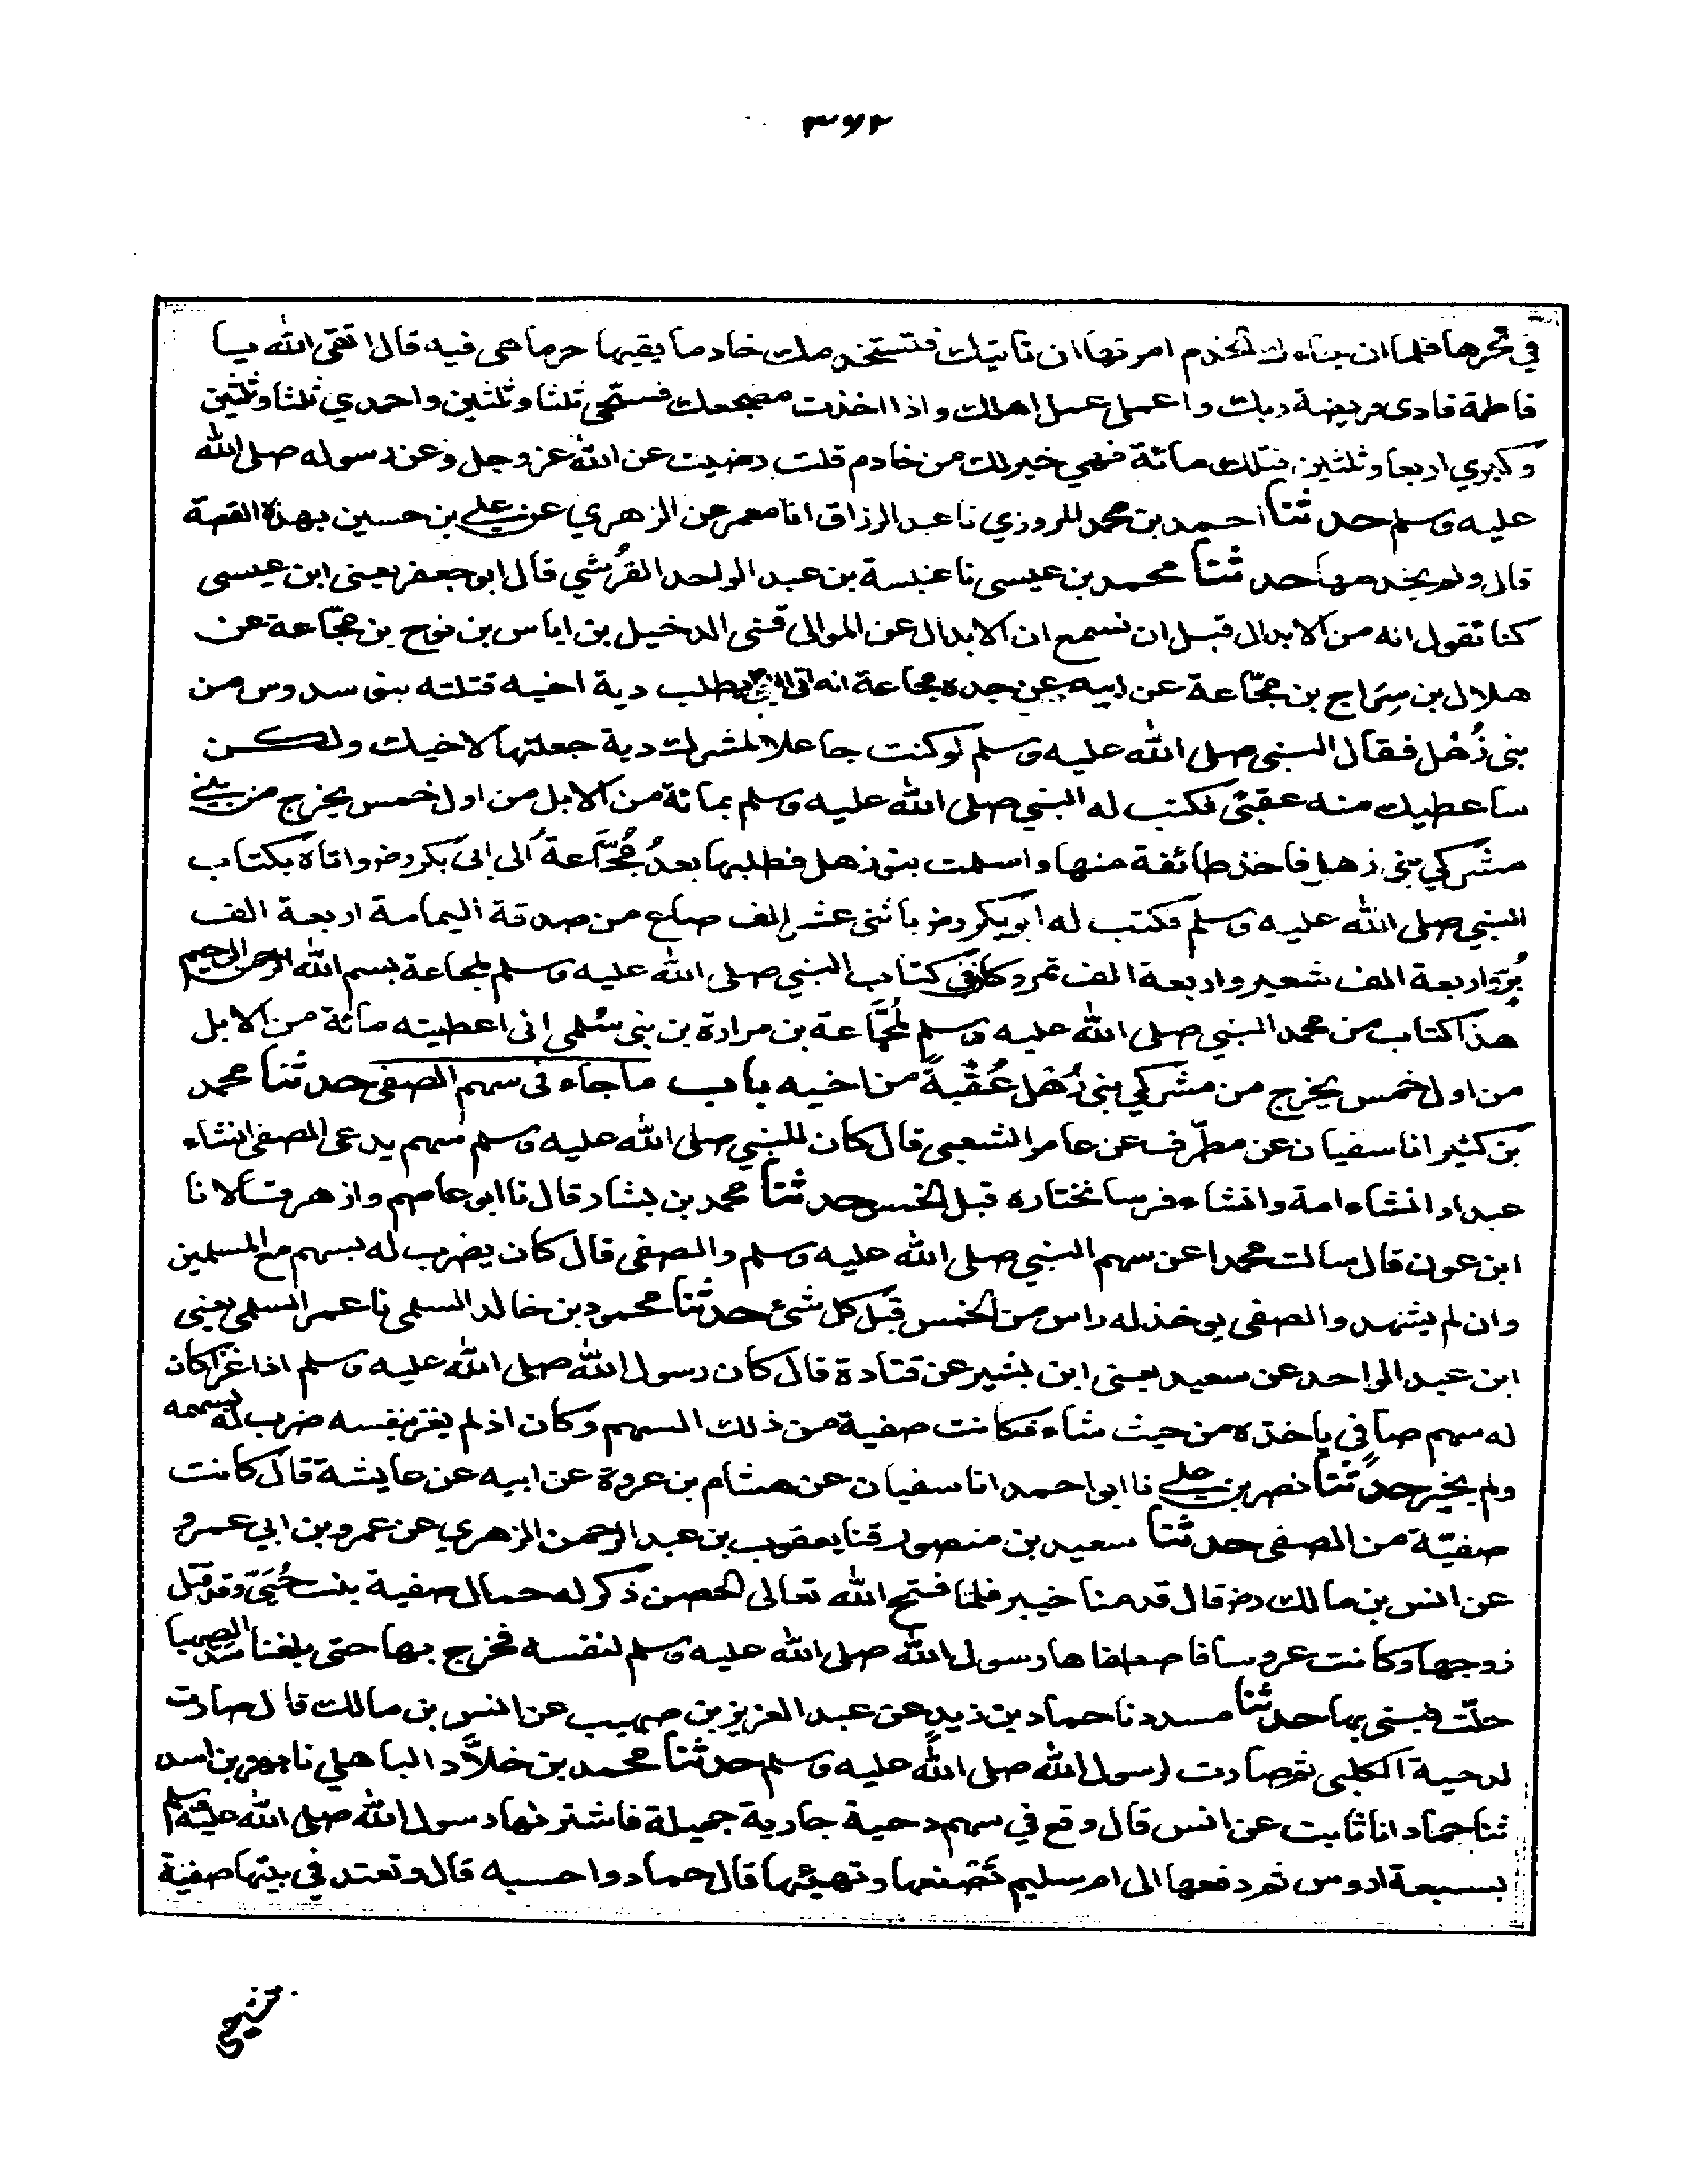 ٣٦٢
في نحرها فلما ان جاءك الخدم امرتها ان تاتيك فتستخدمك خادما يقيها حرما هي فيه قال اتقي الله يا
فاطمة فادي فريضة ربك واعملي عمل اهلك واذا اخذت مضجعك فسبّحي ثلثا وثلثين واحمدي ثلثا وثلثين
وكبري اربعا وثلثين فتلك مائة فهي خير لك من خادم قلت رضيت عن الله عز وجل وعن رسوله صلى الله
عليه وسلم حدثنا احمد بن محمد المروزي نا عبد الرزاق انا معمر عن الزهري عن علي بن حسين بهذه القصة
قال ولم يخدمها حدثنا محمد بن عيسى نا عنبسة بن عبد الواحد القُرشي قال ابو جعفر يعني ابن عيسى
كنا نقول انه من الابدال قبل ان نسمع ان الابدال عن الموالي قثنى الدخيل بن اياس بن نوح بن مجّاعة عن
هلال بن سِرَاج بن مجّاعة عن ابيه عن جده مجاعة انه اتى النبي يطلب دية اخيه قتلته بنو سدوس من
بني ذُهْل فقال النبي صلى الله عليه وسلم لو كنت جاعلا لمشرك دية جعلتها لاخيك ولكن
ساعطيك منه عقبىً فكتب له النبي صلى الله عليه وسلم بمائة من الابل من اول خمس يخرج من بني
مشركي بني ذهل فاخذ طائفة منها واسلمت بنو ذهل فطلبها بعدُ مُجَّاعةُ الى ابي بكر رض واتاه بكتاب
النبي صلى الله عليه وسلم فكتب له ابو بكر رض باثنى عشر الف صاع من صدقة اليمامة اربعة الف
بُرّ واربعة الف شعير واربعة الف تمر وكان في كتاب النبي صلى الله عليه وسلم لمجاعة بسم الله الرحمن الرحيم
هذا كتاب من محمد النبي صلى الله عليه وسلم لمُجَّاعة بن مرارة بن بني سُلمى انى اعطيته مائة من الابل
من اول خمس يخرج من مشركي بني ذُهْل عُقْبةً من اخيه باب ما جاء في سهم الصفي حدثنا محمد
بن كثير انا سفيان عن مطرّف عن عامر الشعبي قال كان للنبي صلى الله عليه وسلم سهم يدعى الصفي ان شاء
عبدا وان شاء امة وان شاء فرسا نختاره قبل الخمس حدثنا محمد بن بشار قال نا ابو عاصم وازهر قالا نا
ابن عون قال سالت محمدا عن سهم النبي صلى الله عليه وسلم والصفي قال كان يضرب له بسهم مع المسلمين
وان لم يشهد والصفي يوخذ له راس من الخمس قبل كل شئ حدثنا محمود بن خالد السلمي نا عمر السلمي يعني
ابن عبد الواحد عن سعيد يعني ابن بشير عن قتادة قال كان رسول الله صلى الله عليه وسلم اذا غزا كان
له سهم صافي ياخذه من حيث شاء فكانت صفية من ذلك السهم وكان اذ لم يغز بنفسه ضرب له بسهمه
ولم يخير حدثنا نصر بن علي نا ابو احمد انا سفيان عن هشام بن عروة عن ابيه عن عايشة قال كانت
صفيّة من الصفي حدثنا سعيد بن منصور قثنا يعقوب بن عبد الرحمن الزهري عن عمرو بن ابي عمرو
عن انس بن مالك رض قال قدمنا خيبر فلما فتح الله تعالى الحصن ذكر له جمال صفية بنت حُيَيّ وقد قتل
زوجها وكانت عروسا فاصطفاها رسول الله صلى الله عليه وسلم لنفسه فخرج بها حتى بلغنا سد الصهبا
حلّت فبنى بها حدثنا مسدد نا حماد بن زيد عن عبد العزيز بن صهيب عن انس بن مالك قال صارت
لدحية الكلبي ثم صارت لرسول الله صلى الله عليه وسلم حدثنا محمد بن خلاَّد الباهلي نا بهز بن اسد
ثنا حماد انا ثابت عن انس قال وقع في سهم دحية جارية جميلة فاشترىها رسول الله صلى الله عليه وسلم
بسبعة اروس ثم دفعها الى ام سليم تَصْنعها وتهيئها قال حماد واحسبه قال وتعتد في بيتها صفية